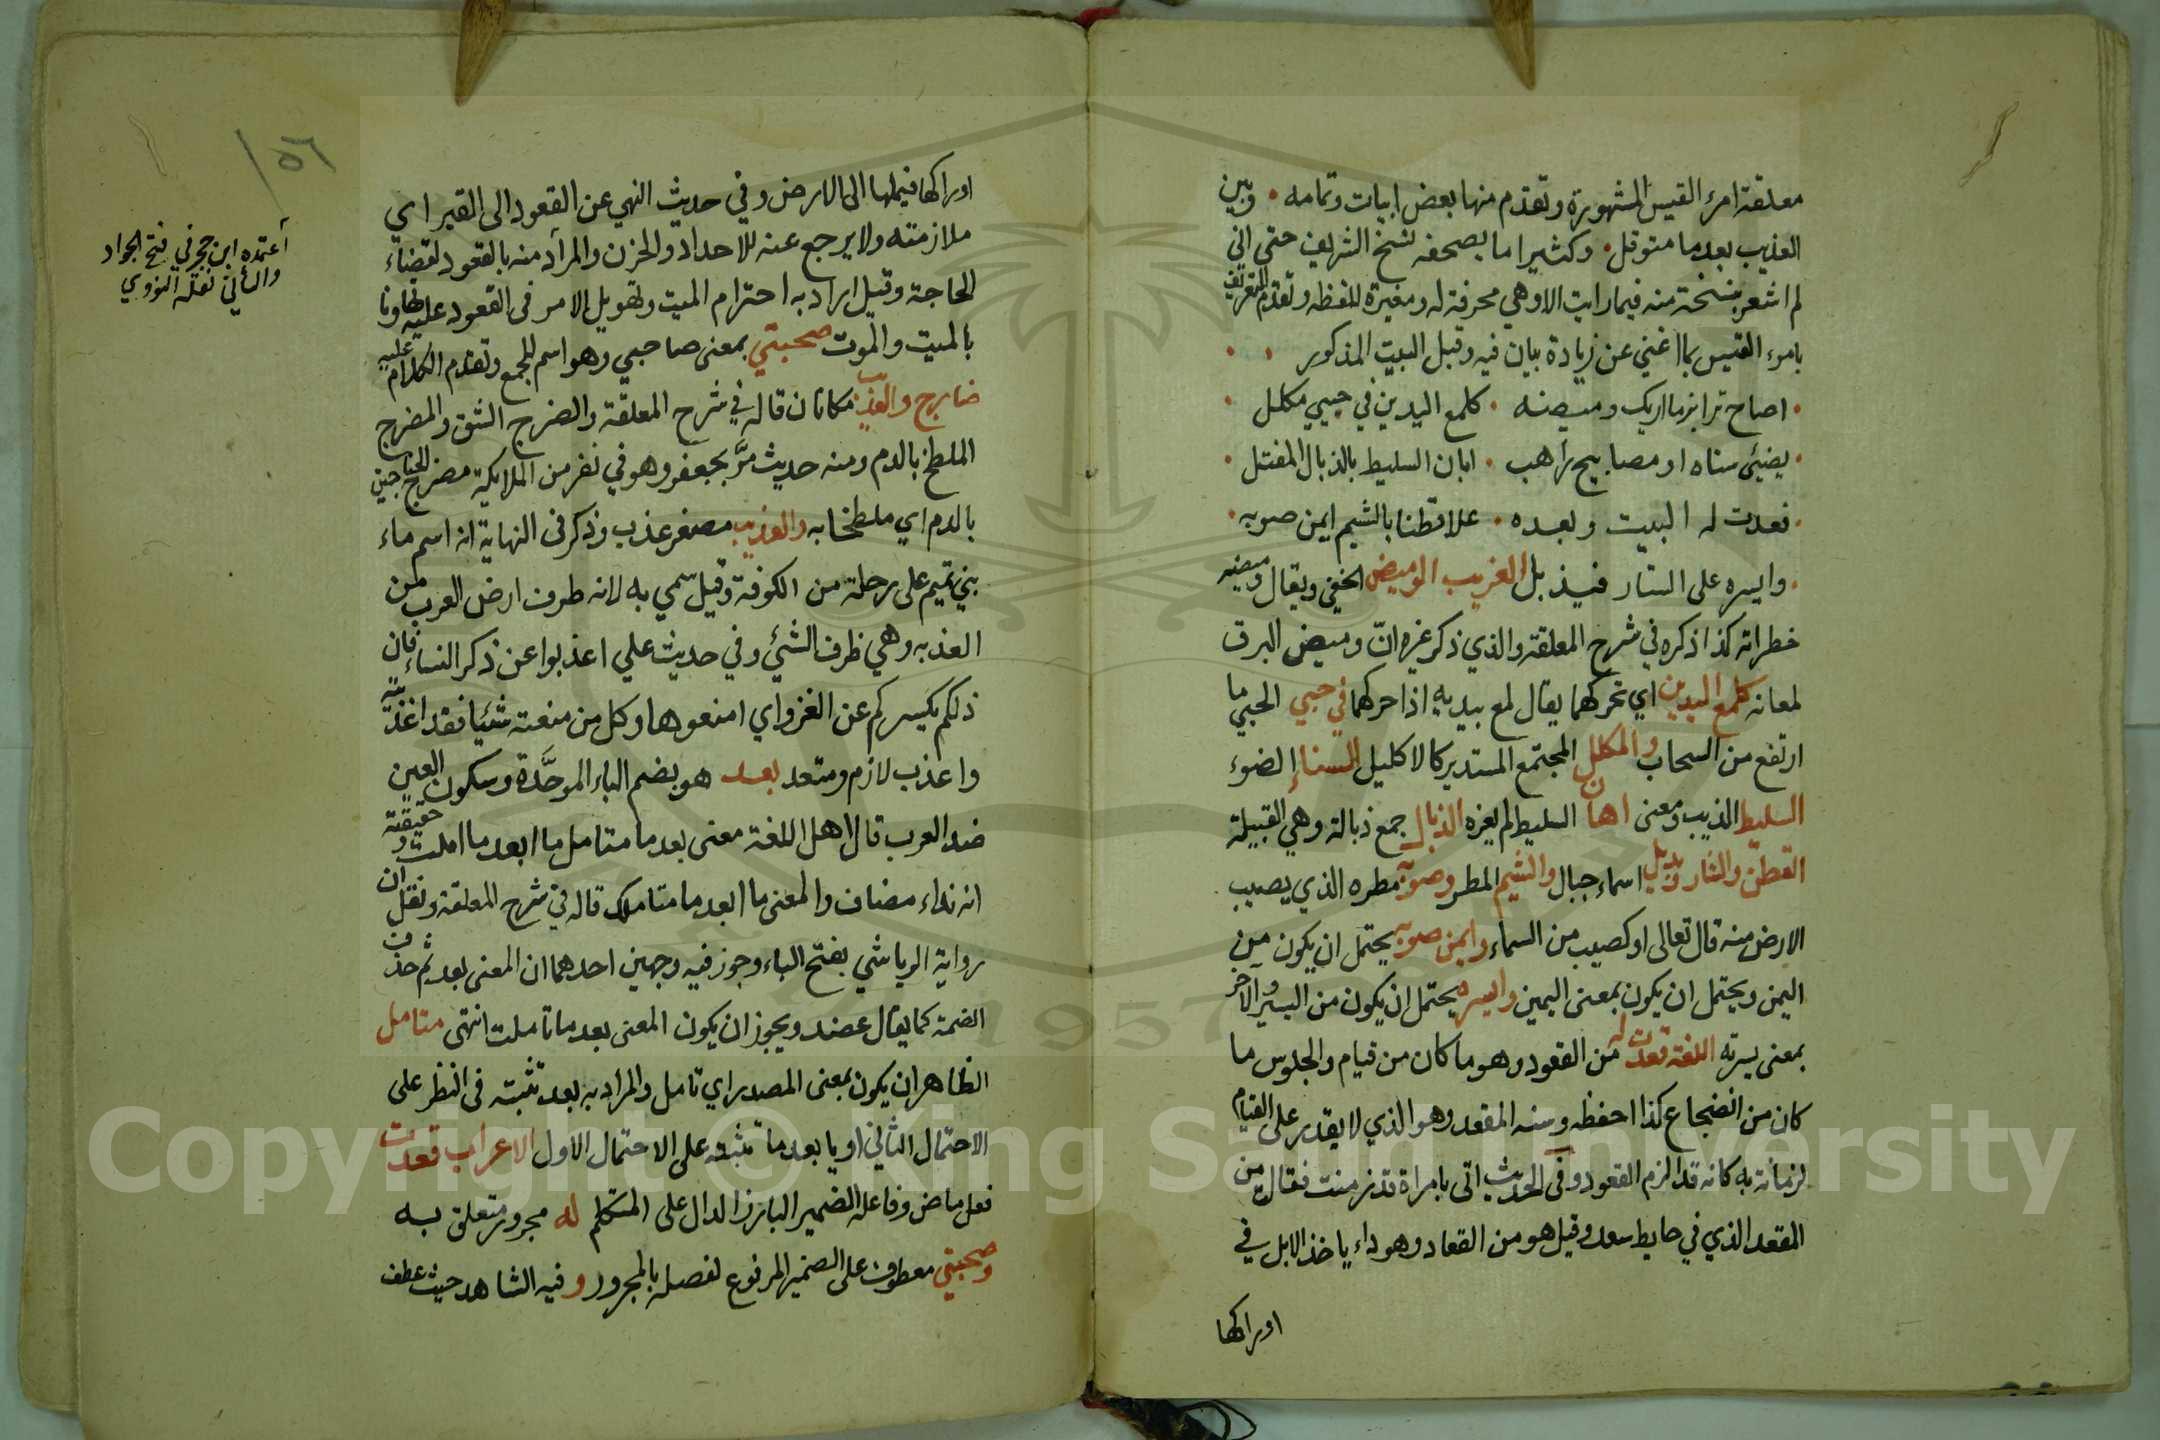 معلقة امرء القيس المشهورة وتقدم منها بعض ابيات وتمامه • وبين
العذيب بعد ما متوقل • وكثيرا ما يصحفه نسخ الشريف حتى اني
لم اشعر بنسخة منه فيما رايت الا وهي محرفة له ومغيرة للفظه وتقدم التعريف
بامرء القيس بما اغنى عن زيادة بيان فيه وقبل البيت المذكور • •
• اصاح ترا برما اريك وميضه • كلمع اليدين في حبي مكلل •
• يضيئ سناه او مصابيح راهب • ابان السليط بالذبال المفتل •
• قعدت له البيت وبعده • علا قطنا بالشيم ايمن صوبه •
• وايسره على الستار فيذبل الغريب الوميض الخفي ويقال وميضه
خطراته كذا ذكره في شرح المعلقة والذي ذكر غيره انّ وميض البرق
لمعانه كلمع اليدين اي تحركهما يقال لمع بيديه اذا حركهما في حبي الحبي ما
ارتفع من السحاب والمكلل المجتمع المستدير كالاكليل السناء الضوء
السليط الذيب ومعنى اهان السليط لم يعزه الذبال جمع ذبالة وهي القبيلة
القطن والنار ويذبل اسماء جبال والشيم المطر وصوبه مطره الذي يصيب
الارض منه قال تعالى او كصيب من السماء وايمن صوبه يحتمل ان يكون من
اليمن ويحتمل ان يكون بمعنى اليمين وايسره يحتمل ان يكون من اليسر والاخر
بمعنى يسرته اللغة قعدت له من القعود وهو ما كان من قيام والجلوس ما
كان من انضجاع كذا احفظه وسنه المقعد وهو الذي لا يقدر على القيام
لزمانة به كانه قد الزم القعود وفى الحديث اتى بامراة قد زمنت فقال من
المقعد الذي في حايط سعد وقيل هو من القعاد وهو داء ياخذ الابل في
اوراكها
اوراكها فيميلها الى الارض وفي حديث النهي عن القعود الى القبر اي
ملازمته ولا يرجع عنه للاحداد والحزن والمراد منه بالقعود لقضاء
الحاجة وقيل اراد به احترام الميت وتهويل الامر فى القعود عليه تهاونا
بالميت والموت صحبتي بمعنى صاحبي وهو اسم للجمع وتقدم الكلام عليه
ضارج والعذيب مكانان قاله في شرح المعلقة والضرج الشق والمضرج
الملطخ بالدم ومنه حديث مرّ بجعفر وهو في نفر من الملايكة مضرج الجناحين
بالدم اي ملطخا به والعذيب مصغر عذب وذكر فى النهاية انه اسم ماء
بني تميم على مرحلة من الكوفة وقيل سمي به لانه طرف ارض العرب من
العذبه وهي طرف الشئ وفي حديث علي اعذبوا عن ذكر النساء فان
ذلكم يكسركم عن الغزو اي امنعوها وكل من منعته شيئا فقد اعذبته
واعذب لازم ومتعد بعد هو بضم الباء الموحَّدة وسكون العين
ضد العرب قال اهل اللغة معنى بعد ما متامل ما ابعد ما املت وحقيقته
انه نداء مضاف والمعنى ما ابعد ما متاملك قاله في شرح المعلقة ونقل ان
رواية الرياشي بفتح الباء وجوز فيه وجهين احدهما ان المعنى بعد ثم حذف
الضمة كما يقال عضد ويجوز ان يكون المعنى بعد ما تاملت انتهى متامل
الظاهر ان يكون بمعنى المصدر اي تامل والمراد به بعد تثبته فى النظر على
الاحتمال الثاني او يا بعد ما تثبته على الاحتمال الاول الاعراب قعدت
فعل ماض وفاعله الضمير البارز الدال على المتكلم له مجرور متعلق به
وصحبتي معطوف على الضمير المرفوع لفصله بالمجرور وفيه الشاهد حيث عطف
١٥٦
أعتمده ابن حجر في فتح الجواد
والثاني نقله النووي
1957
Copyright © King Saud University